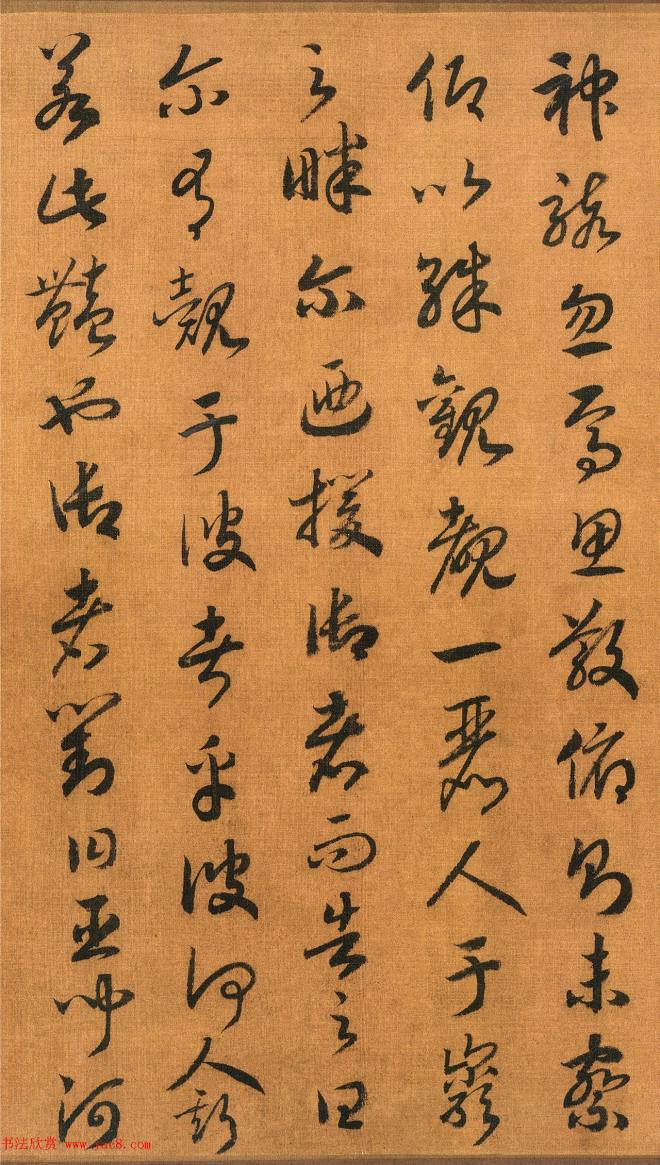 神駭忽焉思散俯則未察
仰以殊觀覩一麗人于巖
之畔尒迺援御者而告之曰
尒有覿于彼者乎彼何人斯
若此豔也御者對曰臣聞河
书法欣赏 www.yac8.com